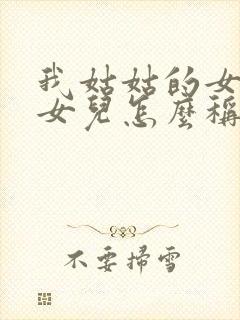 我姑姑的女
女兒怎麼稱
不要掃雪